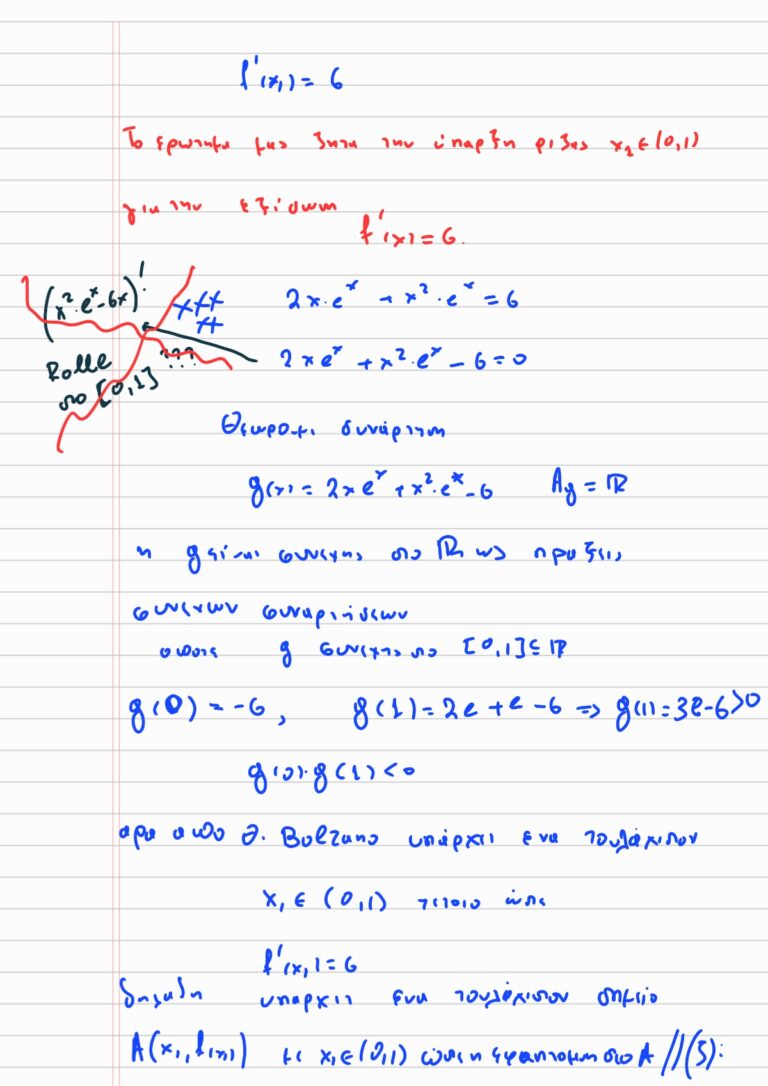 f'(x₁) = 6
Το ερωτημα μας ζητα την ύπαρξη ριζας x₂ ∈ (0,1)
για την εξίσωση
f'(x) = 6.
(x²·eˣ-6x)'
2x·eˣ + x²·eˣ = 6
Rolle ???
στο [0,1]
2xeˣ + x²·eˣ - 6 = 0
Θεωρουμε συνάρτηση
g(x) = 2xeˣ + x²·eˣ - 6 Ag = ℝ
η g είναι συνεχης στο ℝ ως πραξεις
συνεχων συναρτήσεων
οποτε g συνεχης στο [0,1] ⊆ ℝ
g(0) = -6, g(1) = 2e + e - 6 ⇒ g(1) = 3e-6>0
g(0)·g(1) < 0
αρα απο Θ. Bolzano υπάρχει ενα τουλάχιστον
x₁ ∈ (0,1) τετοιο ώστε
f'(x₁) = 6
δηλαδη υπαρχει ενα τουλάχιστον σημείο
A(x₁, f(x₁)) με x₁∈(0,1) ώστε η εφαπτομενη στο A //(ζ):